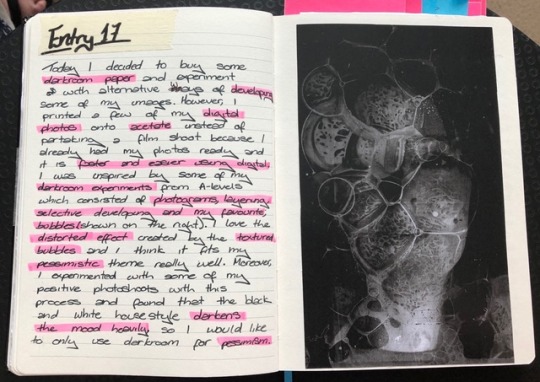 Entry 17
Today I decided to buy some
darkroom paper and experiment
with alternative ways of developing
some of my images. However, I
printed a few of my digital
photos onto acetate instead of
partaking a film shoot because I
already had my photos ready and
it is faster and easier using digital.
I was inspired by some of my
darkroom experiments from A-levels
which consisted of photograms, layering,
selective developing and my favourite,
bubbles (shown on the right). I love the
distorted effect created by the textured
bubbles and I think it fits my
pessimistic theme really well. Moreover,
I experimented with some of my
positive photoshoots with this
process and found that the black
and white housestyle darkens
the mood heavily so I would like
to only use darkroom for pessimism.